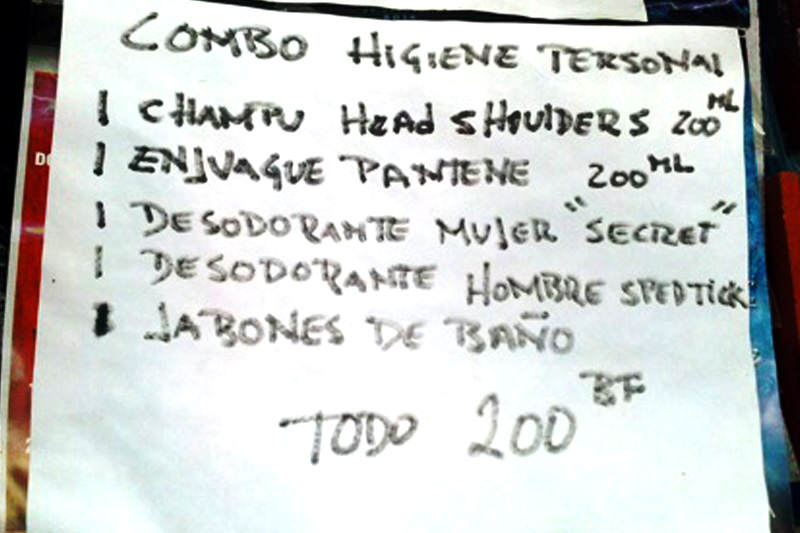 COMBO HIGIENE PERSONAl
1 CHAMPU HEAd SHOUlDERS 200 ML
1 ENJUAGUE PANTENE 200 ML
1 DESODORANTE MUJER "SECRET"
1 DESODORANTE HOMBRE SPEDTICK
1 JABONES DE BAÑO
TODO 200 BF